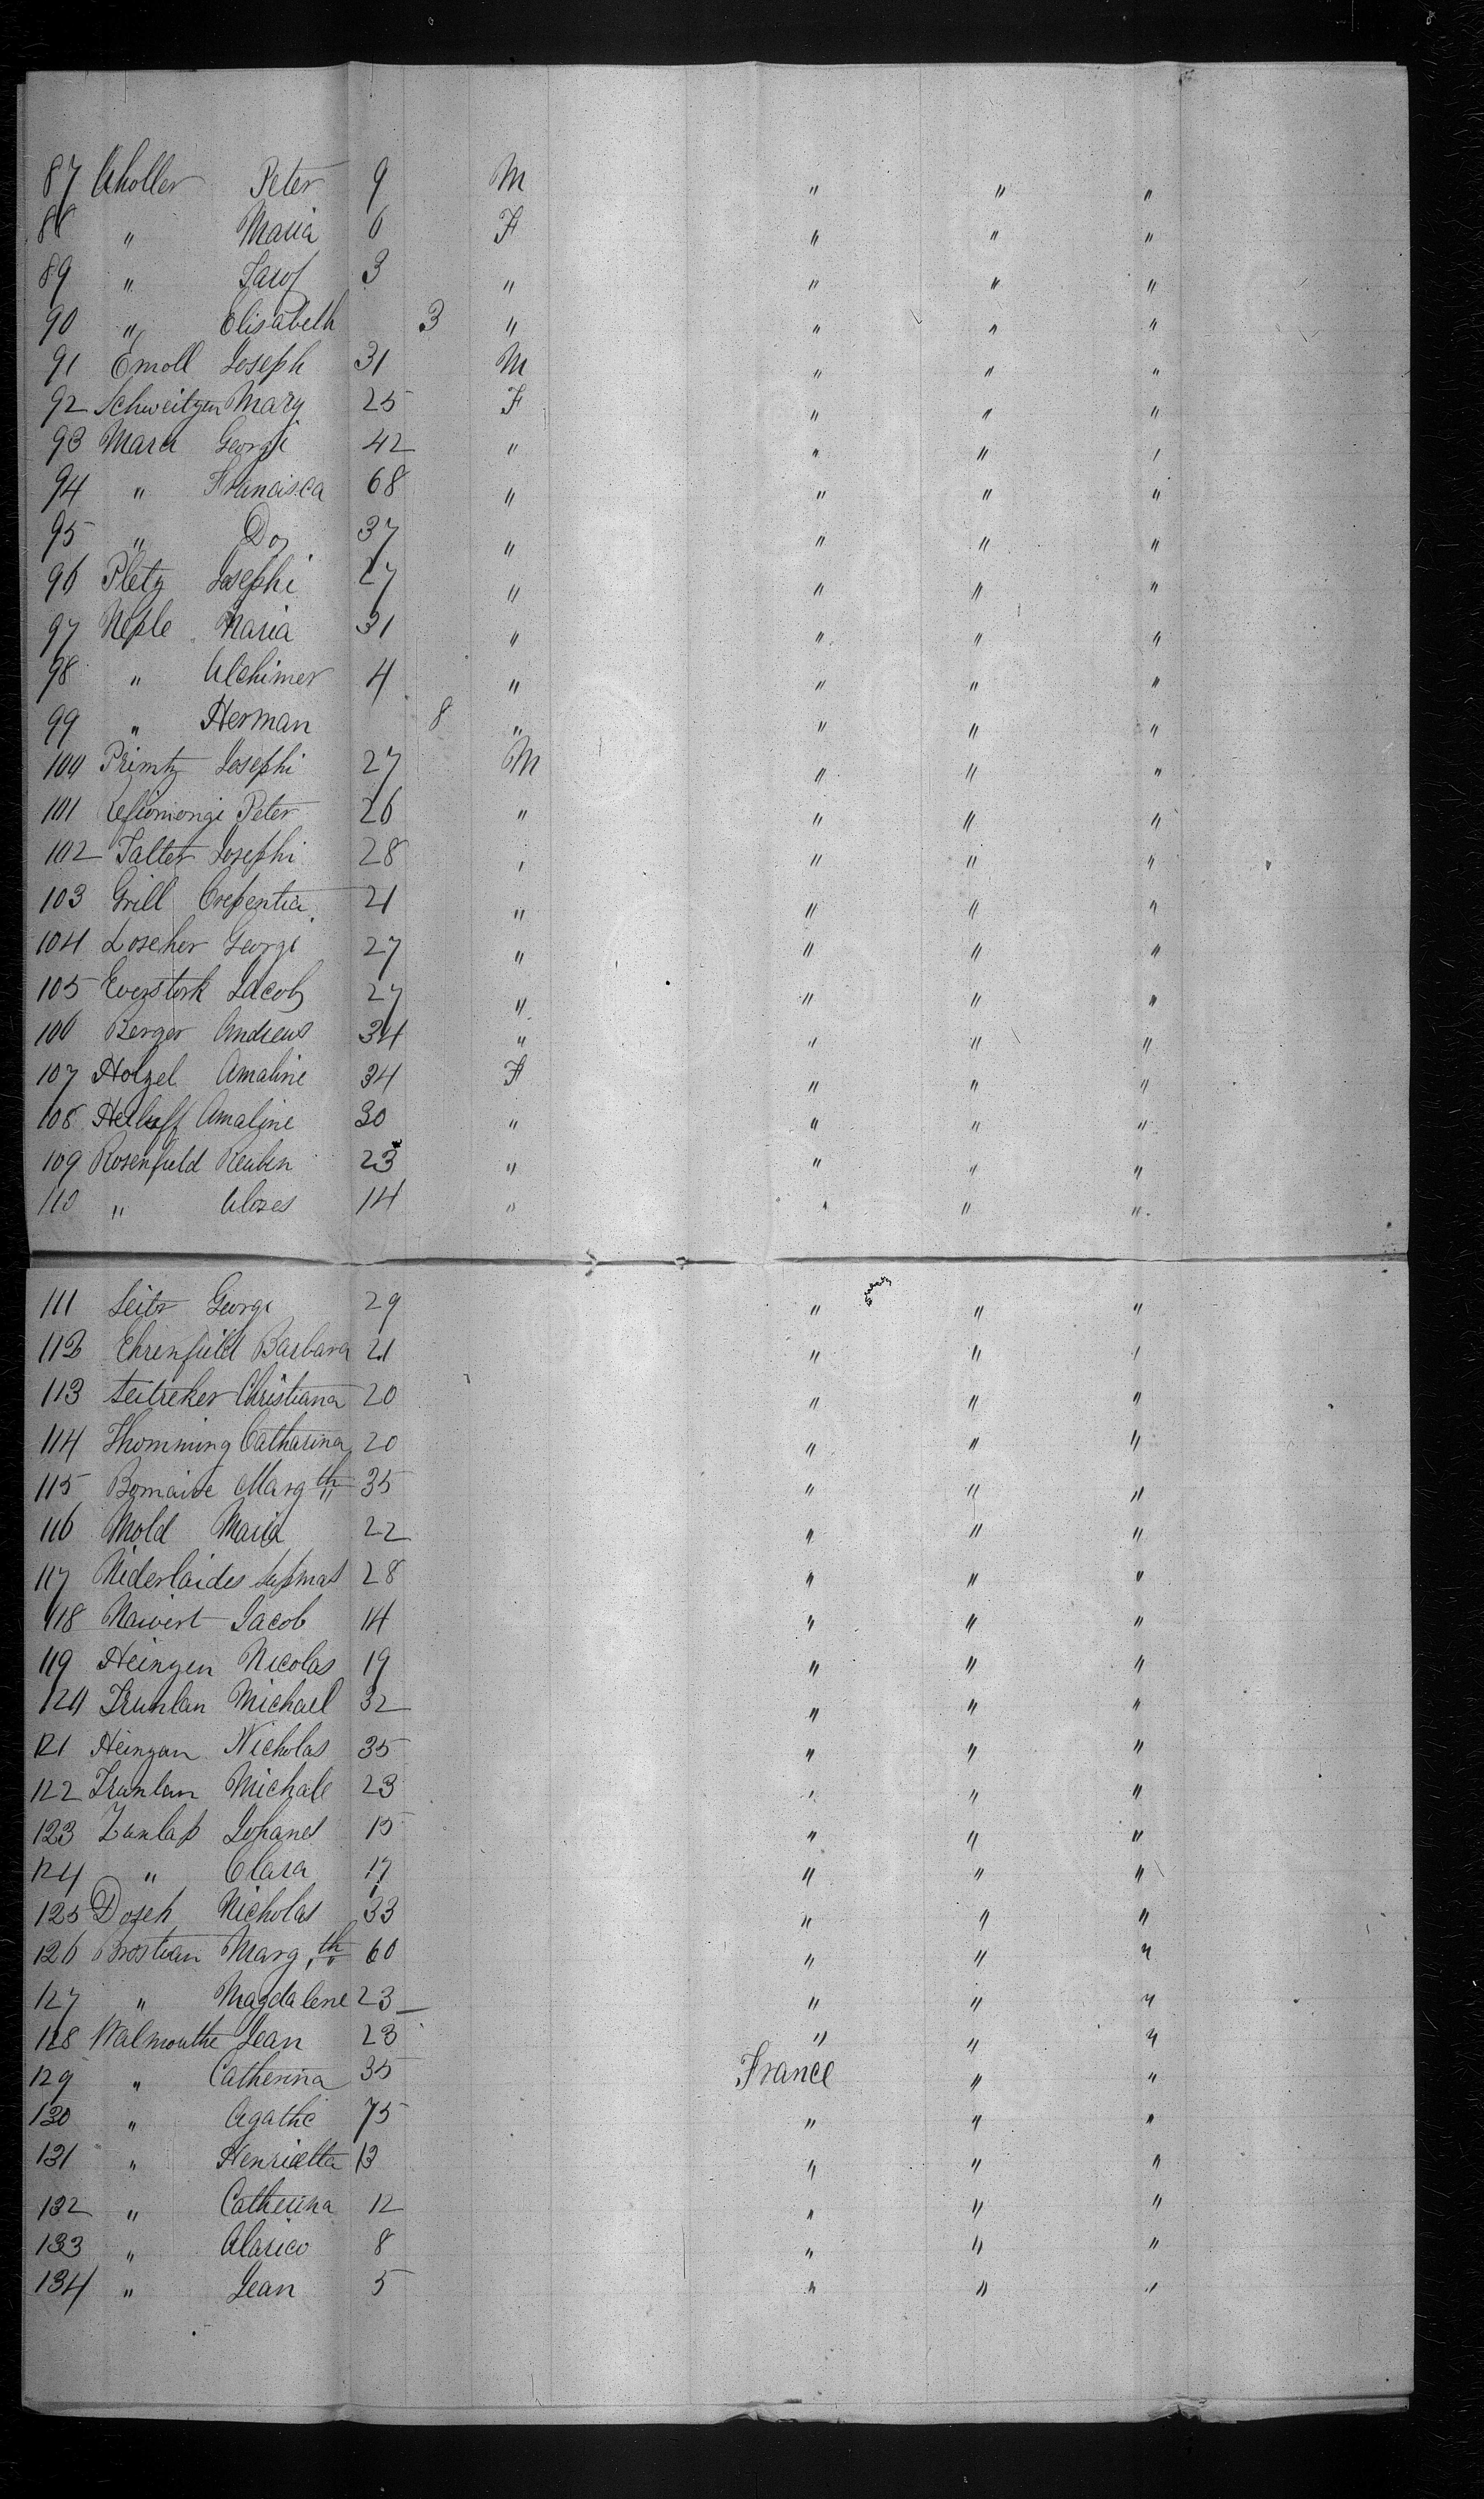 87 Choller Peter 9 M " " "
88 " Maria 6 F " " "
89 " 3 " " " "
90 " Elisabeth 3 " " " "
91 Emoll Joseph 31 M " " "
92 Schweitzen Mary 25 F " " "
93 Mara Georgi 42 " " " "
94 " Francisca 68 " " " "
95 " Do, 37 " " " "
96 Pletz Josephi 27 " " " "
97 Neple Maria 31 " " " "
98 " Alchimer 4 " " " "
99 " Herman 8 " " " "
100 Primtz Josephi 27 M " " "
101 Peter 26 " " " "
102 Talter Josephi 28 " " " "
103 Grill Crepentia 21 " " " "
104 Loscher Georgi 27 " " " "
105 Everstork Jacob 27 " " " "
106 Berger Andreus 34 " " " "
107 Holzel Amaline 34 F " " "
108 Amaline 30 " " " "
109 Rosenfield Reuben 23 " " " "
110 " Alozes 14 " " " "
111 Seitz Georgi 29 " " "
112 Ehrenfield Barbara 21 " " "
113 Christiana 20 " " "
114 Thomming Catharina 20 " " "
115 Bomaise Marg th 35 " " "
116 Mold Maria 22 " " "
117 Niderlaides 28 " " "
118 Nawert Jacob 14 " " "
119 Heinzen Nicolas 19 " " "
120 Trunlan Michael 32 " " "
121 Heinzan Nicholas 35 " " "
122 Trunlan Michale 23 " " "
123 Zunlap Johanes 15 " " "
124 " Clara 17 " " "
125 Dozeh Nicholas 33 " " "
126 Brostian Marg th 60 " " "
127 " Magdalene 23 " " "
128 Walmouthe Jean 23 " " "
129 " Catherina 35 France " "
130 " Agathe 75 " " "
131 " Henrietta 13 " " "
132 " Catherina 12 " " "
133 " Alarico 8 " " "
134 " Jean 5 " " "